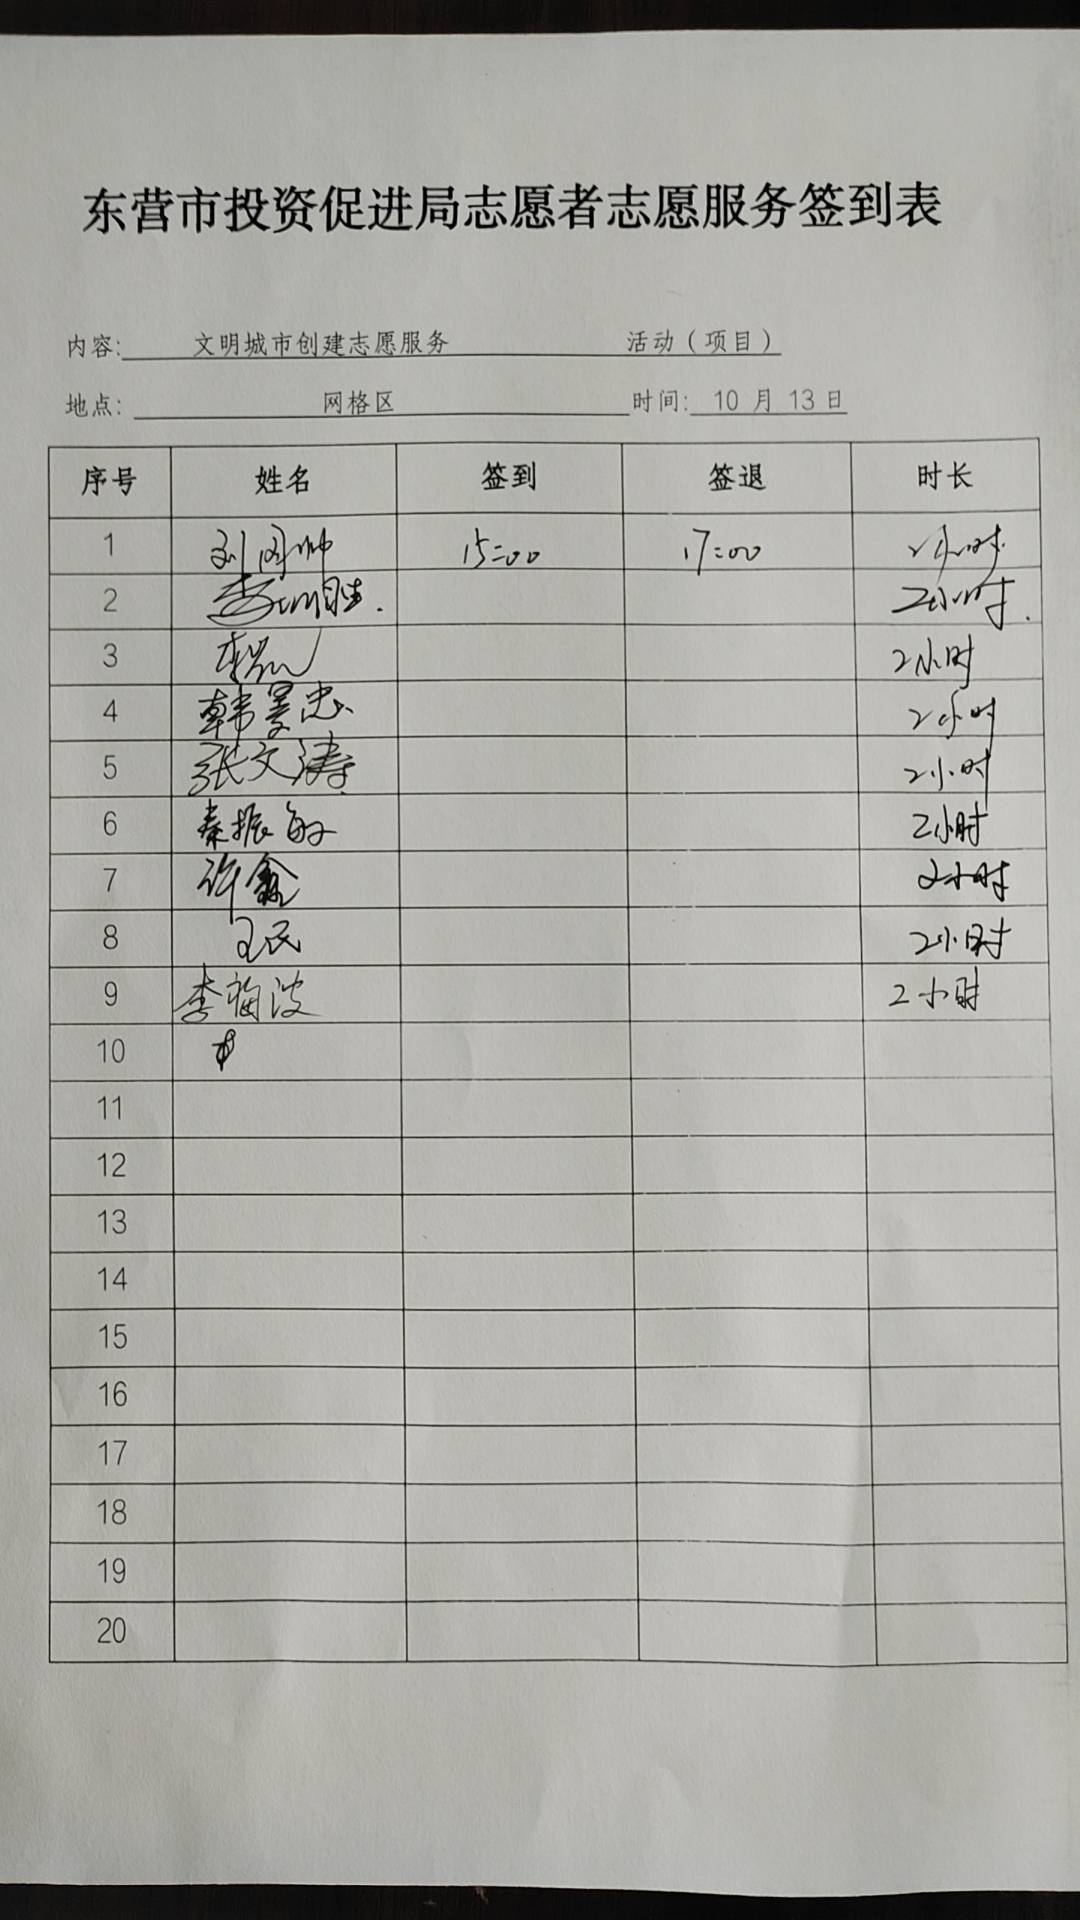 东营市投资促进局志愿者志愿服务签到表
内容: 文明城市创建志愿服务 活动（项目）
地点: 网格区 时间: 10 月 13 日
序号 姓名 签到 签退 时长
1 刘 帅 15:00 17:00 2小时
2 李 胜. 2小时.
3 2小时
4 韩景忠 2小时
5 张文涛 2小时
6 秦振敏 2小时
7 许鑫 2小时
8 王民 2小时
9 李福波 2小时
10
11
12
13
14
15
16
17
18
19
20